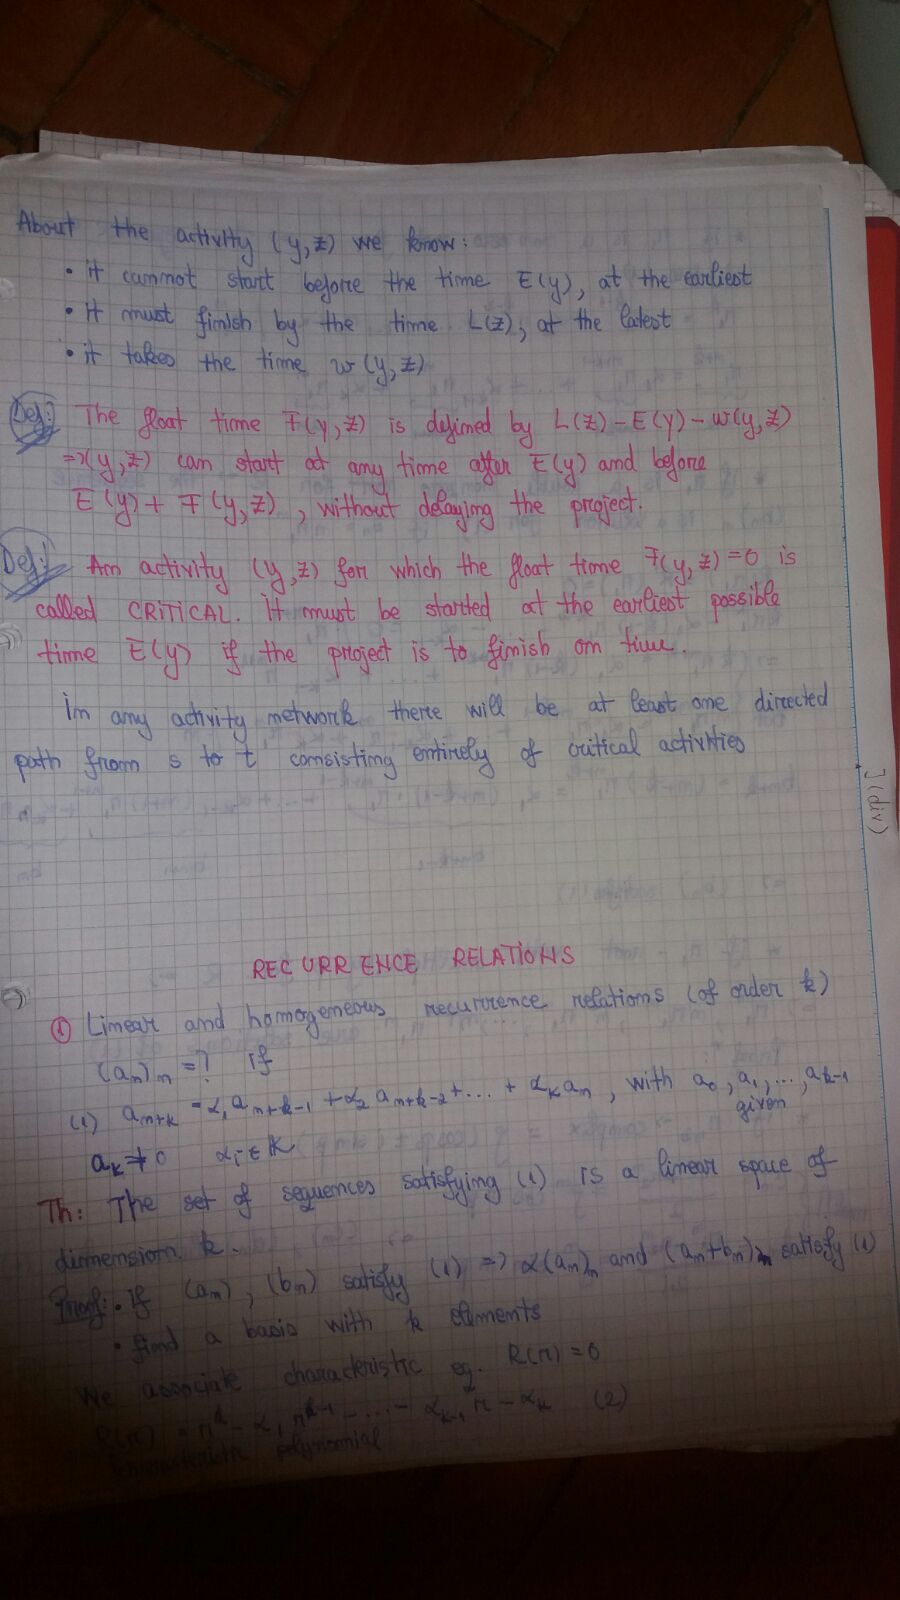 About the activity (y,z) we know:
• it cannot start before the time E(y), at the earliest
• it must finish by the time L(z), at the latest
• it takes the time w(y,z)
Def: The float time F(y,z) is defined by L(z)-E(y)-w(y,z)
=>(y,z) can start at any time after E(y) and before
E(y)+F(y,z), without delaying the project.
Def: An activity (y,z) for which the float time F(y,z)=0 is
called CRITICAL. it must be started at the earliest possible
time E(y) if the project is to finish on time.
in any activity network there will be at least one directed
path from s to t consisting entirely of critical activities
] (div)
RECURRENCE RELATIONS
① Linear and homogeneous recurrence relations (of order k)
(aₙ)ₙ=? if
(1) aₙ₊ₖ = α₁aₙ₊ₖ₋₁ + α₂aₙ₊ₖ₋₂ + ... + αₖaₙ, with a₀, a₁, ..., aₖ₋₁
given
aₖ ≠ 0 αᵢ ∈ K
Th: The set of sequences satisfying (1) is a linear space of
dimension k.
Proof: • if (aₙ), (bₙ) satisfy (1) => α(aₙ)ₙ and (aₙ+bₙ)ₙ satisfy (1)
• find a basis with k elements
We associate characteristic eq. R(r)=0
R(r) = rᵏ - α₁rᵏ⁻¹ - ... - αₖ₋₁r - αₖ (2)
characteristic polynomial